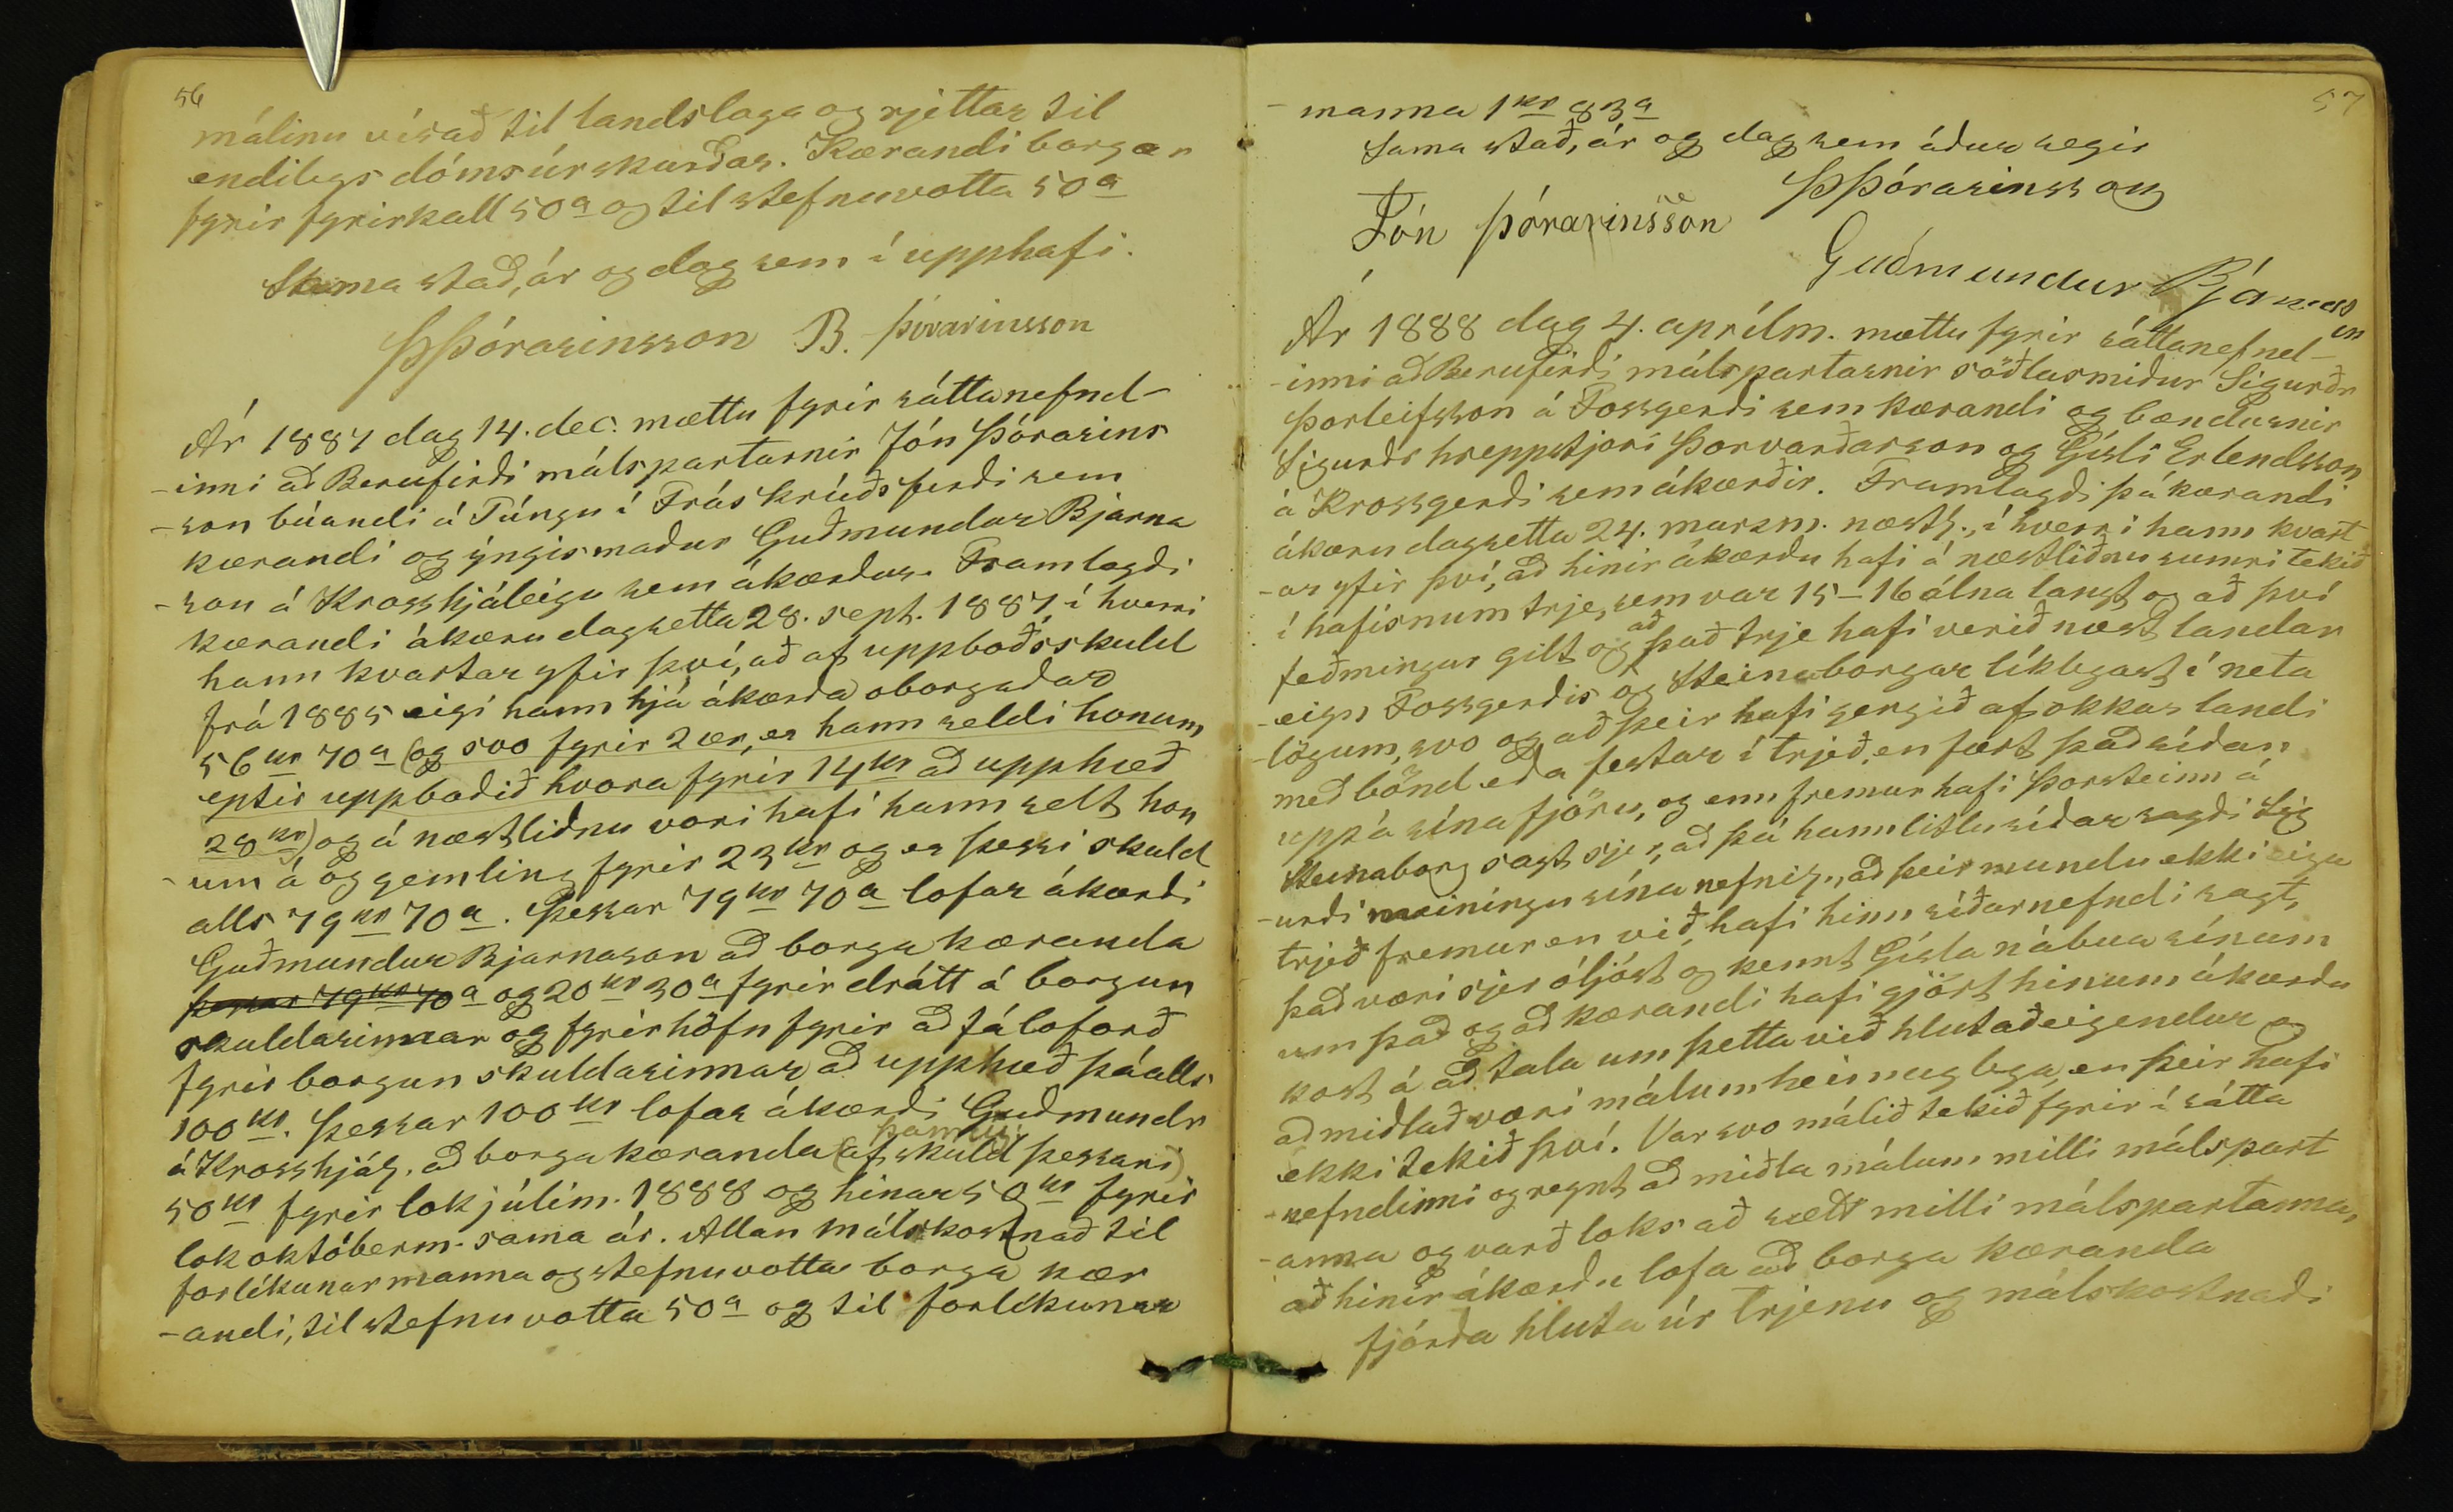 56
málinu vísað til landslaga og rjettar til
endilegs dómsúrskurðar. Kærandi borgar
fyrir fyrirkall 50a og til stefnuvotta 50a
Sama stað, ár og dag sem í upphafi.
ÞÞórarinsson B. Þórarinsson
Ár 1887 dag 14. dec. mættu fyrir sáttanefnd-
-inni að Berufirði málspartarnir Jón Þórarins
-son búandi á Túngu í Fráskrúðsfirði sem
kærandi og ýngismaður Guðmundur Bjarna
-son á Krosshjáleigu sem ákærður. Framlagði
kærandi ákæru dagsetta 28. sept. 1887, í hverri
hann kvartar yfir því, að af uppboðsskuld
frá 1885 eigi hann hjá ákærða óborgaðar
56 kr 70a (og svo fyrir 2 ær, er hann seldi honum
eptir uppboðið hvora fyrir 14kr að upphæð
28 kr) og á næstliðnu vori hafi hann selt hon
-um á og gemling fyrir 23kr og er þessi skuld
alls 79kr 70a. Þessar 79kr 70a lofar ákærði
Guðmundur Bjarnason að borga kæranda
þessar 79kr 70a og 20kr 30a fyrir drátt á borgun
skuldarinnar og fyrirhöfn fyrir að fá loforð
fyrir borgun skuldarinnar að upphæð þá alls
100kr. Þessar 100kr lofar ákærði Guðmundr
á Krosshjál. að borga kæranda (af skuld þessari)
þannig:
50kr fyrir lok júlím. 1888 og hinar 50kr fyrir
lok októberm. sama ár. Allan málskostnað til
forlíkunarmanna og stefnuvotta borga kær
-andi, til stefnuvotta 50a og til forlíkunar
57
-manna 1kr 83a
Sama stað, ár og dag sem áður segir
ÞÞórarinsson
Jón Þórarinsson
Guðmundur Bjarnason
Ár 1888 dag 4. aprílm. mættu fyrir sáttanefnd-
-inni að Berufirði málspartarnir söðlasmiður Sigurðr
Þorleifsson á Fossgerði sem kærandi og bændurnir
Sigurðr hreppstjóri Þorvarðarson og Gísli Erlendsson
á Krossgerði sem ákærðir. Framlagði þá kærandi
ákæru dagsetta 24. marsm. næstl., í hverri hann kvart
-ar yfir því, að hinir ákærðu hafi á næstliðnu sumri tekið
í hafísnum trje, sem var 15-16 álna langt og að því
feðmingur gilt og að það trje hafi verið næst landar
-eign Fossgerðis og Steinaborgar líklegast í neta
-lögum, svo og að þeir hafi gengið af okkar landi
með bönd eða festar í trjeð, en fært það síðan
upp á sína fjöru, og enn fremur hafi Þorsteinn á
Steinaborg sagt sjer, að þá hann litlu síðar sagði Sig
-urði meiningu sína nefnil., að þeir mundu ekki eiga
trjeð fremur en við, hafi hinn síðarnefndi sagt,
það væri sjer óljóst og kennt Gísla nábúa sínum
um það og að kærandi hafi gjört hinum ákærðu
kost á að tala um þetta við hlutaðeigendur og
að miðlað væri málum heimuglega, en þeir hafi
ekki tekið því. Var svo málið tekið fyrir í sátta
-nefndinni og reynt að miðla málum milli málspart
-anna og varð loks að sætt milli málspartanna,
að hinir ákærðu lofa að borga kæranda
fjórða hluta úr trjenu og málskostnaði